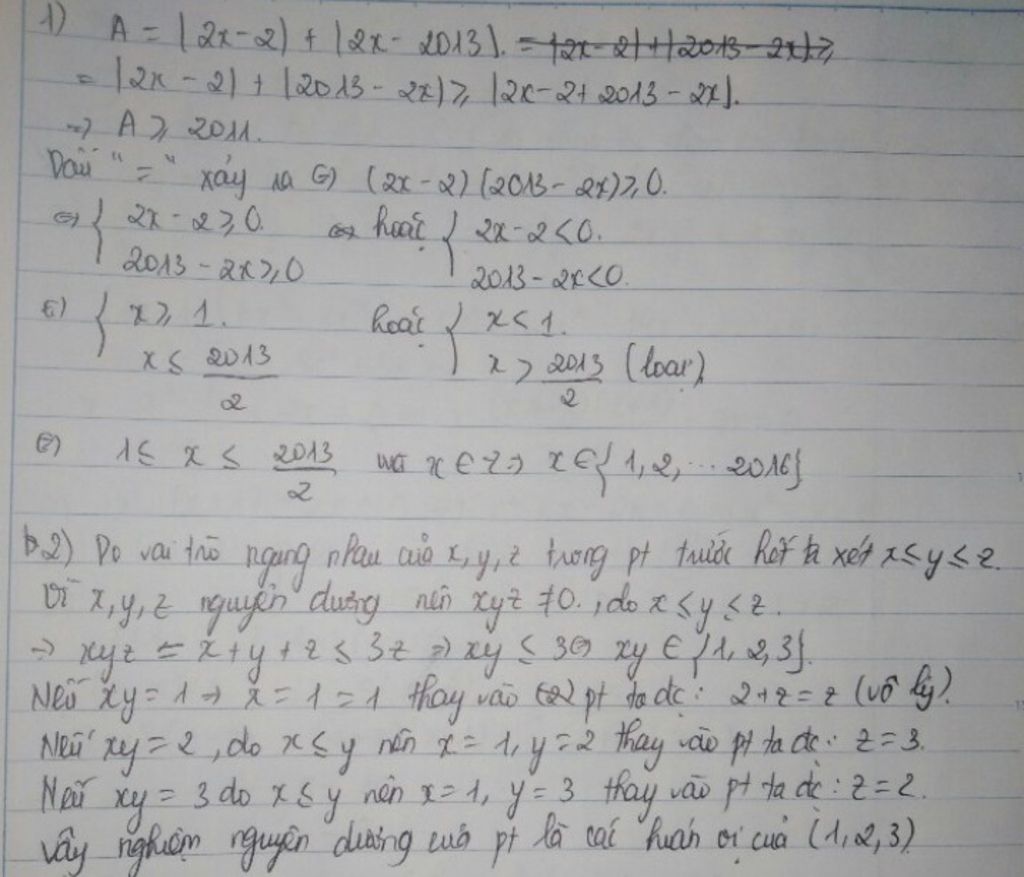 1) A = |2x-2| + |2x-2013|. = |2x-2|+|2013-2x| ≥
= |2x-2| + |2013-2x| ≥ |2x-2+2013-2x|.
⇒ A ≥ 2011.
Dấu "=" xảy ra ⇔ (2x-2)(2013-2x) ≥ 0.
⇔ { 2x-2 ≥ 0. hoặc { 2x-2 < 0.
2013-2x ≥ 0 2013-2x < 0.
⇔ { x ≥ 1. hoặc { x < 1.
x ≤ 2013/2 x > 2013/2 (loại)
⇔ 1 ≤ x ≤ 2013/2 mà x ∈ Z ⇒ x ∈ {1, 2, ... 2016}
b.2) Do vai trò ngang nhau của x, y, z trong pt trước hết ta xét x ≤ y ≤ z.
Vì x, y, z nguyên dương nên xyz ≠ 0., do x ≤ y ≤ z.
⇒ xyz = x + y + z ≤ 3z ⇒ xy ≤ 3 ⇔ xy ∈ {1, 2, 3}.
Nếu xy = 1 → x = 1 = 1 thay vào (2) pt ta đc: 2+z = z (vô lý).
Nếu xy = 2, do x ≤ y nên x = 1, y = 2 thay vào pt ta đc: z = 3.
Nếu xy = 3 do x ≤ y nên x = 1, y = 3 thay vào pt ta đc: z = 2.
Vậy nghiệm nguyên dương của pt là các hoán vị của (1, 2, 3)